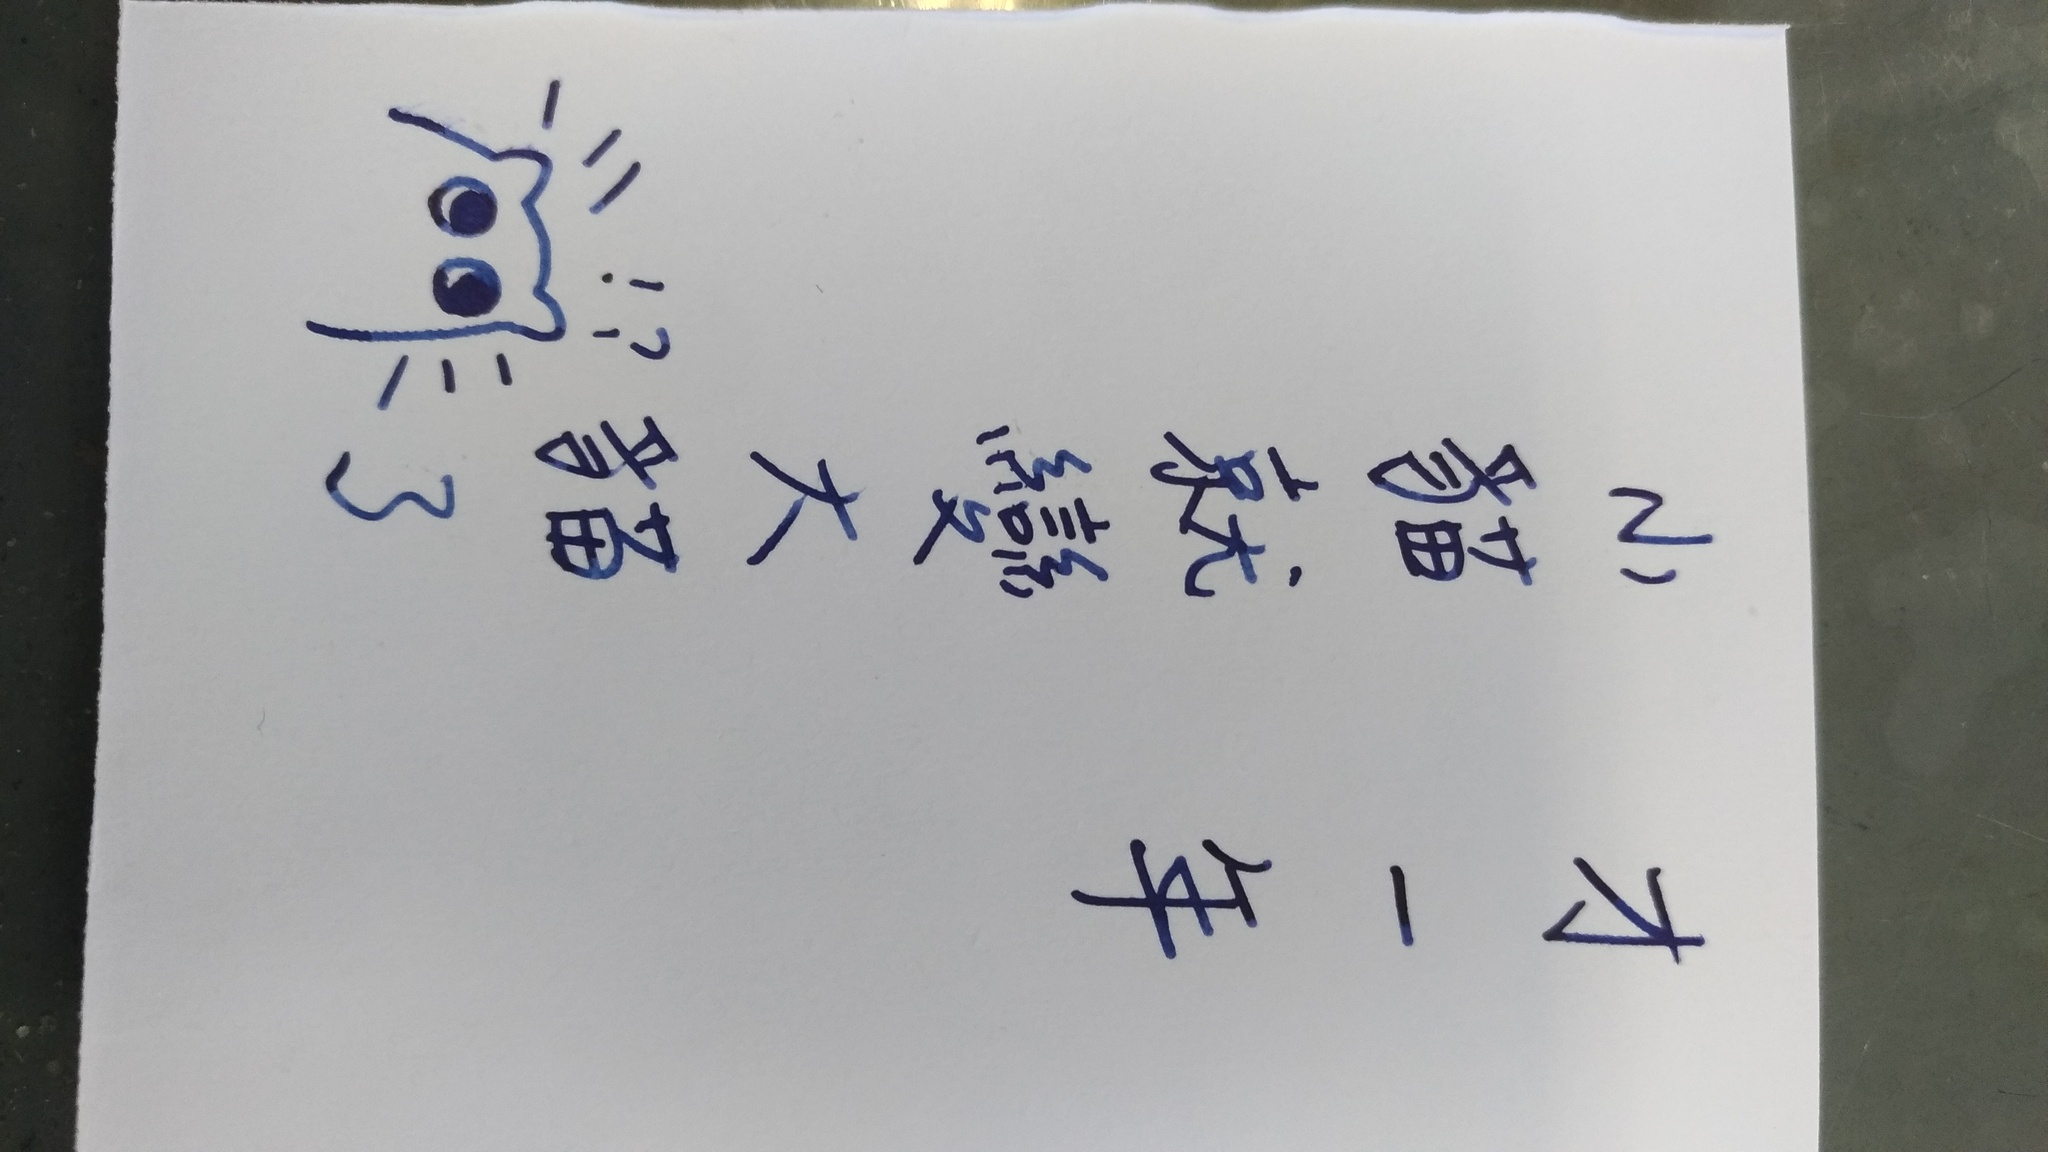 才一年
小貓就變大貓了
!?